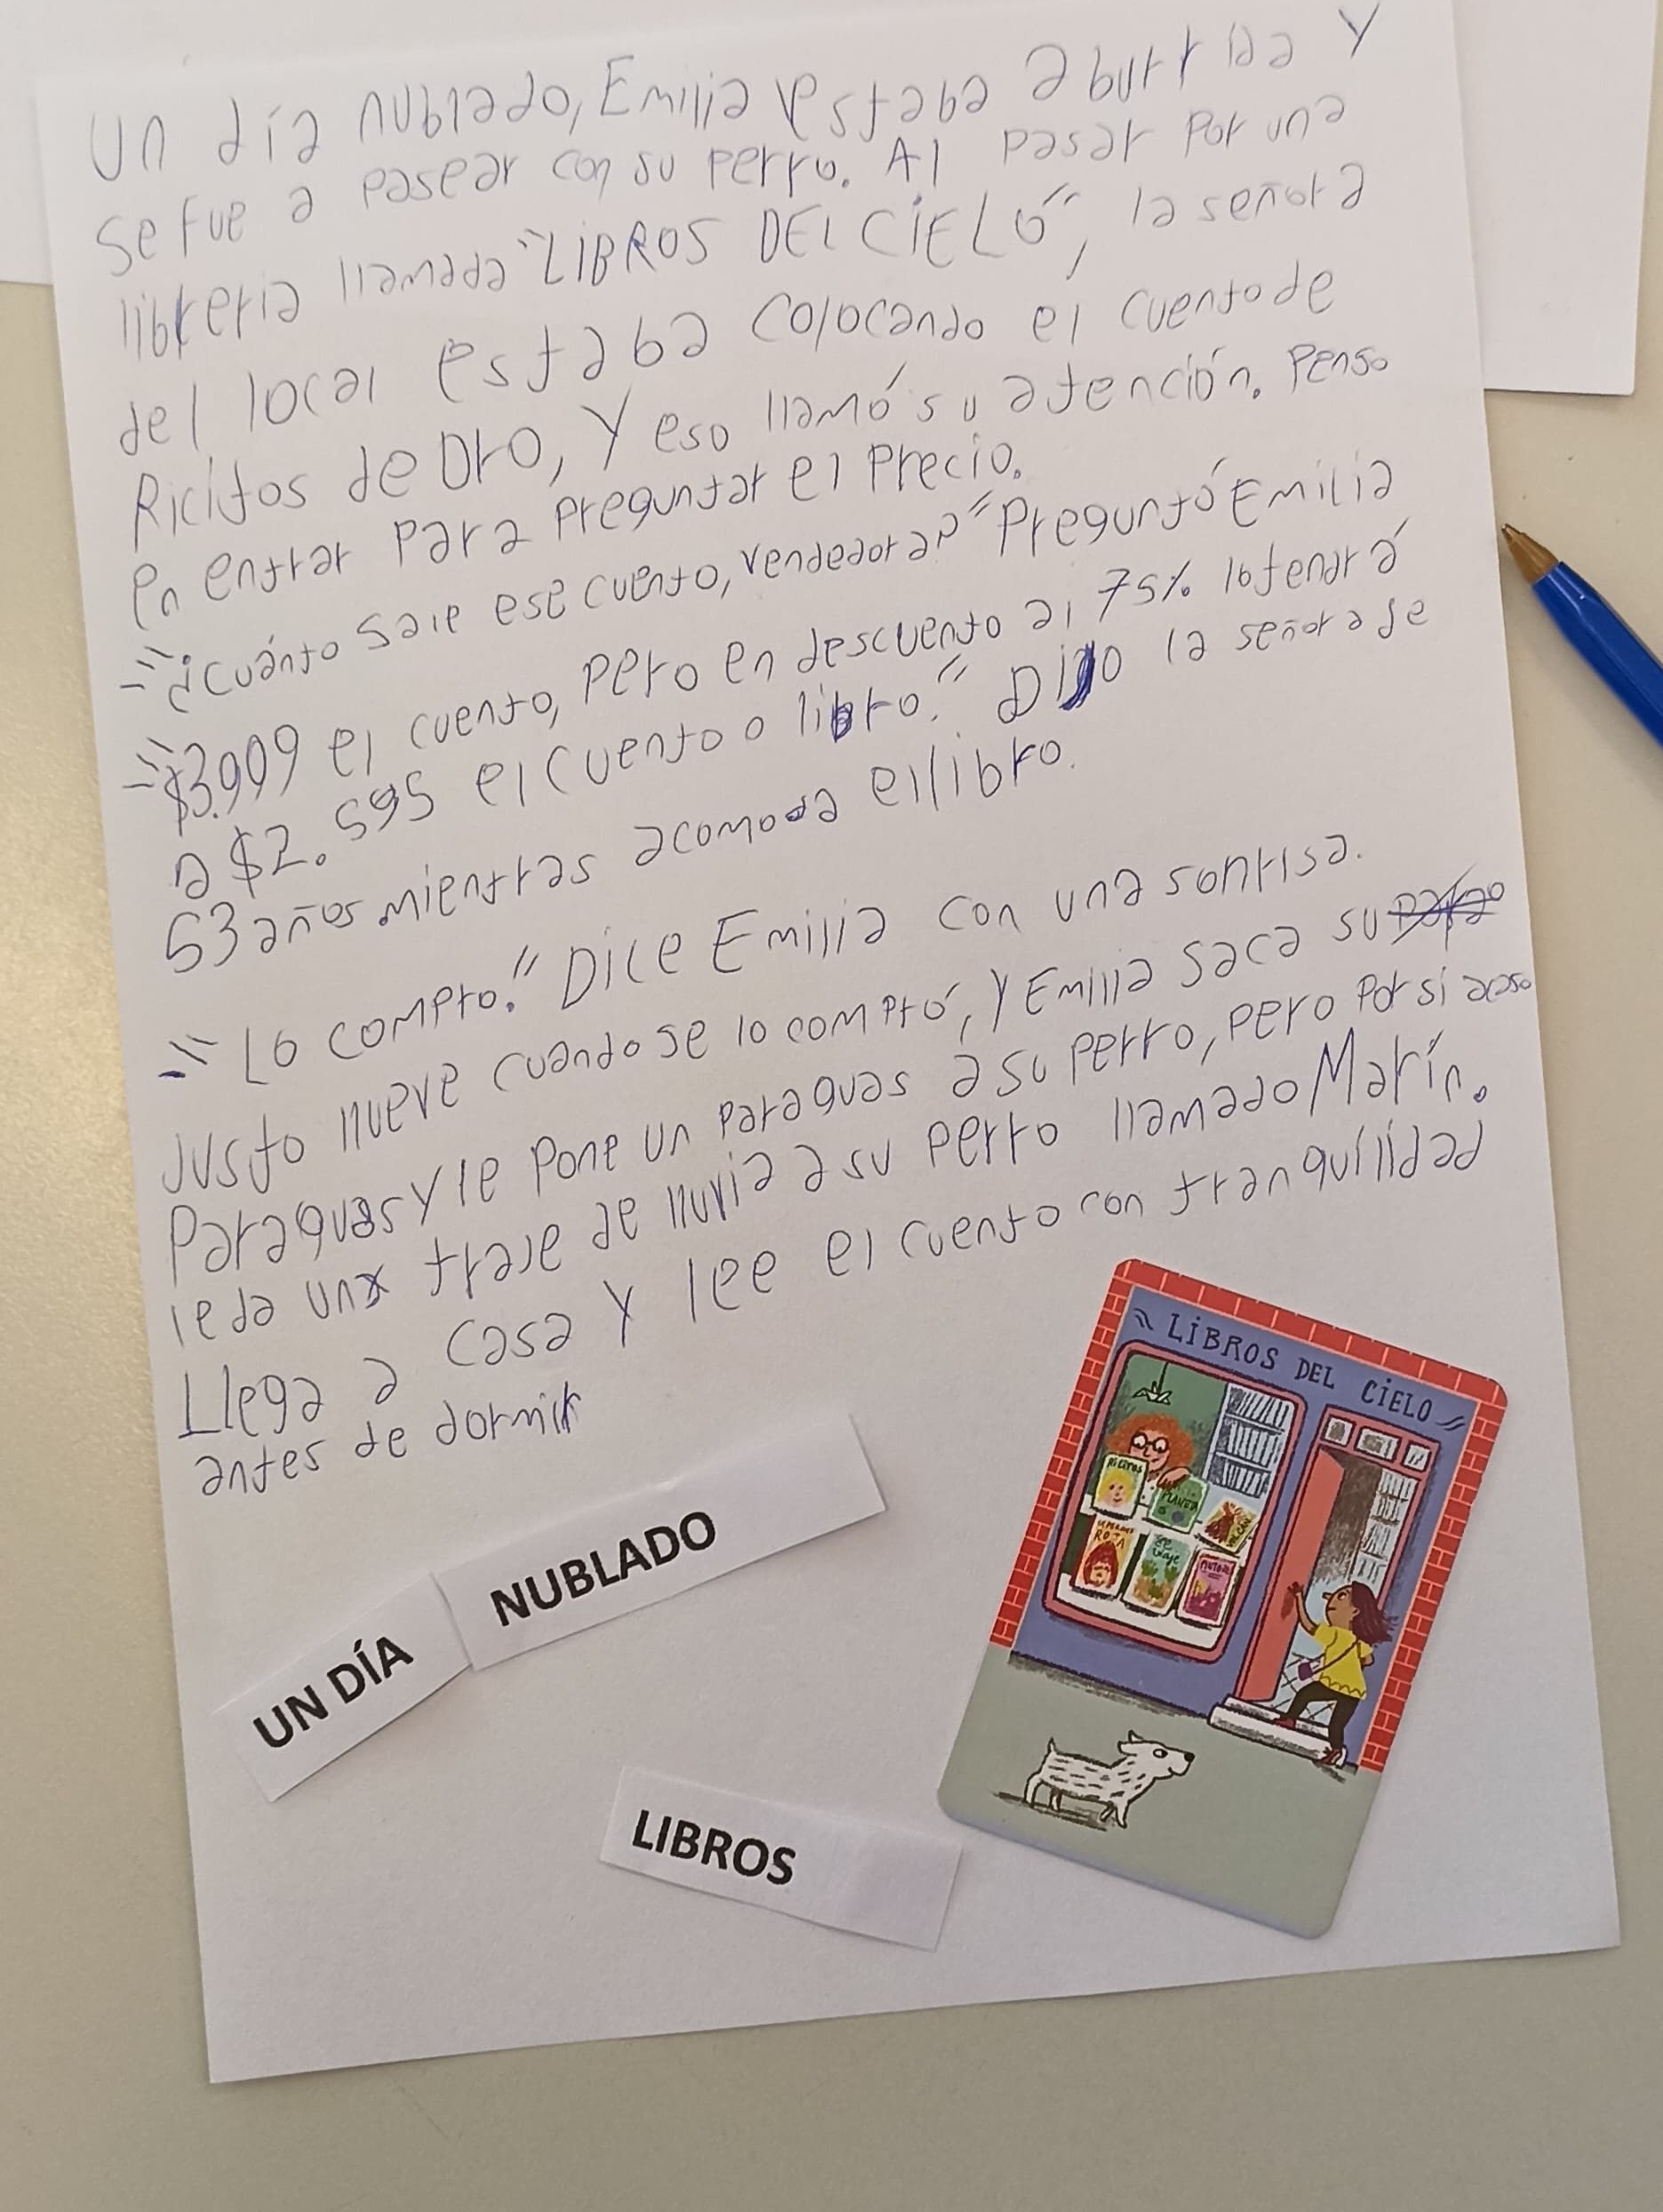 Un día nublado, Emilia estaba aburrida y
se fue a pasear con su perro. Al pasar por una
libreria llamada "LiBROS DEL CiELO", la señora
del local estaba colocando el cuento de
Ricitos de Oro, y eso llamó su atención. Penso
en entrar para preguntar el precio.
-"¿Cuánto sale ese cuento, vendedora?" Preguntó Emilia
-"$3.909 el cuento, pero en descuento al 75% lo tendrá
a $2.595 el cuento o libro." Dijo la señora de
53 años mientras acomoda el libro.
-"Lo compro." Dice Emilia con una sonrisa.
Justo llueve cuando se lo compró, y Emilia saca su
Paraguas y le pone un paraguas a su perro, pero por si acaso
le da un traje de lluvia a su perro llamado Marín.
Llega a casa y lee el cuento con tranquilidad
antes de dormir
UN DÍA
NUBLADO
LIBROS
LiBROS DEL CiELO
RICITOS
PLANTA
ROJA